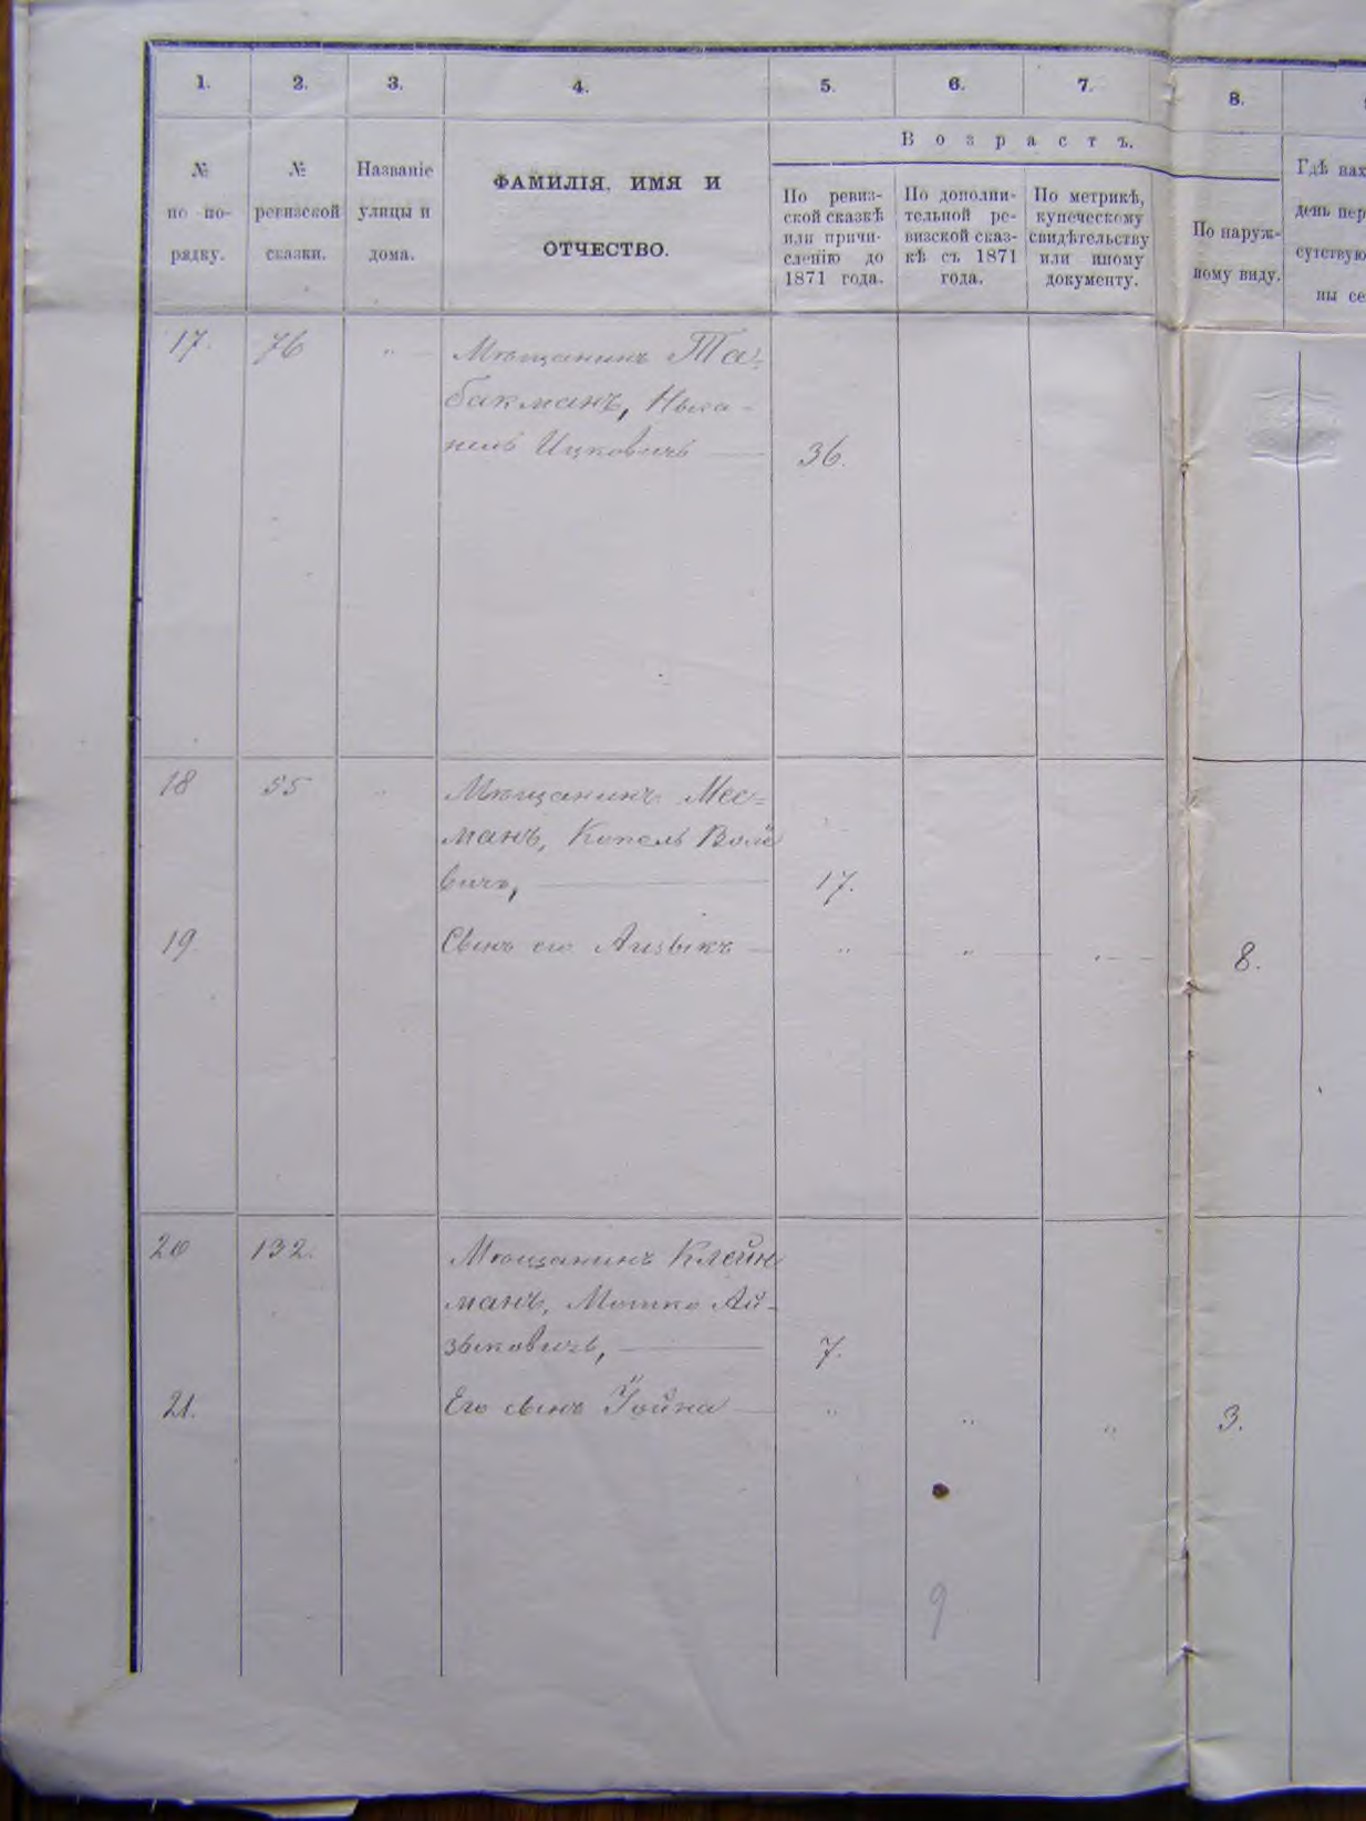 1. 2. 3. 4. 5. 6. 7. 8.
В о з р а с т ъ.
№
по по-
рядку.
№
ревизской
сказки.
Названіе
улицы и
дома.
ФАМИЛІЯ, ИМЯ И
ОТЧЕСТВО.
По ревиз-
ской сказкѣ
или причи-
сленію до
1871 года.
По дополни-
тельной ре-
визской сказ-
кѣ съ 1871
года.
По метрикѣ,
купеческому
свидѣтельству
или иному
документу.
По наруж-
ному виду.
Гдѣ нах
день пер
сутствую
ны се
17. 76 " Мѣщанинъ Та-
бакманъ,
Ицковичъ 36.
18 55 " Мѣщанинъ Мес=
манъ, Копель Воль
вичъ, 17.
19. Сынъ его Айзыкъ " " " 8.
20 132. Мѣщанинъ Клейн
манъ, Мошко Ай-
зыковичъ, 7.
21. Его сынъ " " " 3.
9